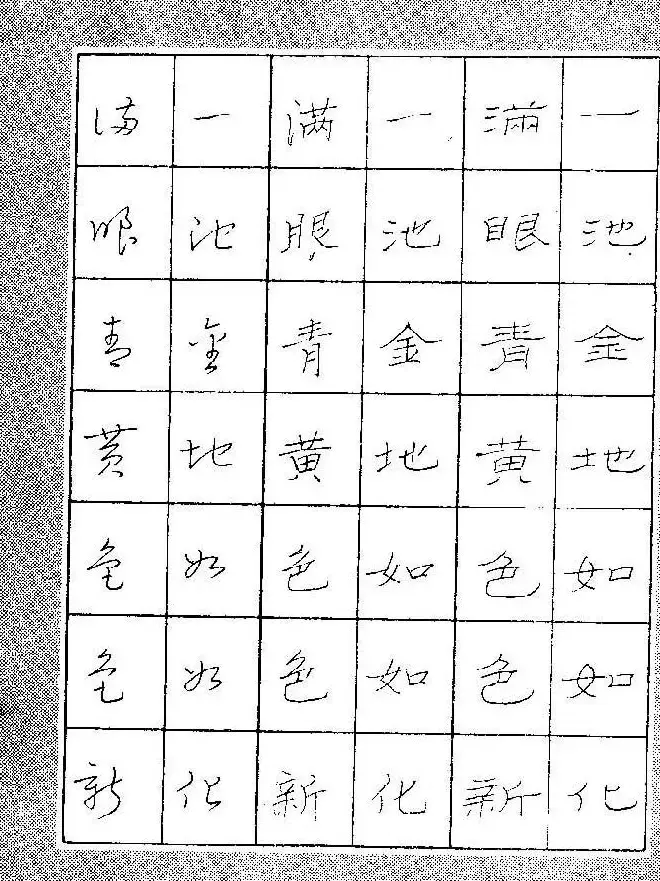 一池金地如如化
滿眼青黄色色新
一池金地如如化
满眼青黄色色新
一池金地如如化
满眼青黄色色新